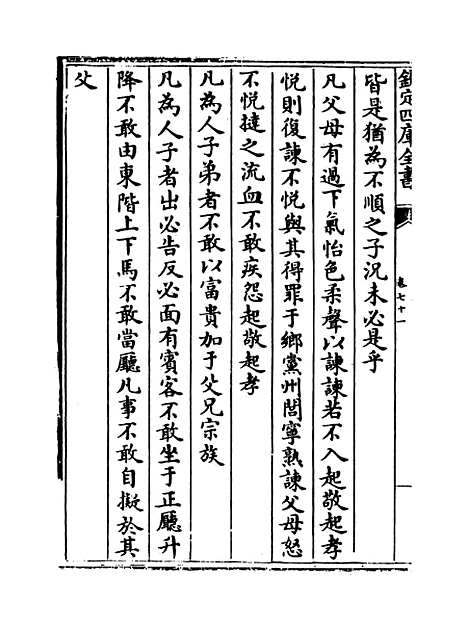 欽定四庫全書
卷七十一
皆是猶為不順之子況未必是乎
凡父母有過下氣怡色柔聲以諫諫若不入起敬起孝
悅則復諫不悅與其得罪于鄉黨州閭寧熟諫父母怒
不悅撻之流血不敢疾怨起敬起孝
凡為人子弟者不敢以富貴加于父兄宗族
凡為人子者出必告反必面有賓客不敢坐于正廳升
降不敢由東階上下馬不敢當廳凡事不敢自擬於其
父